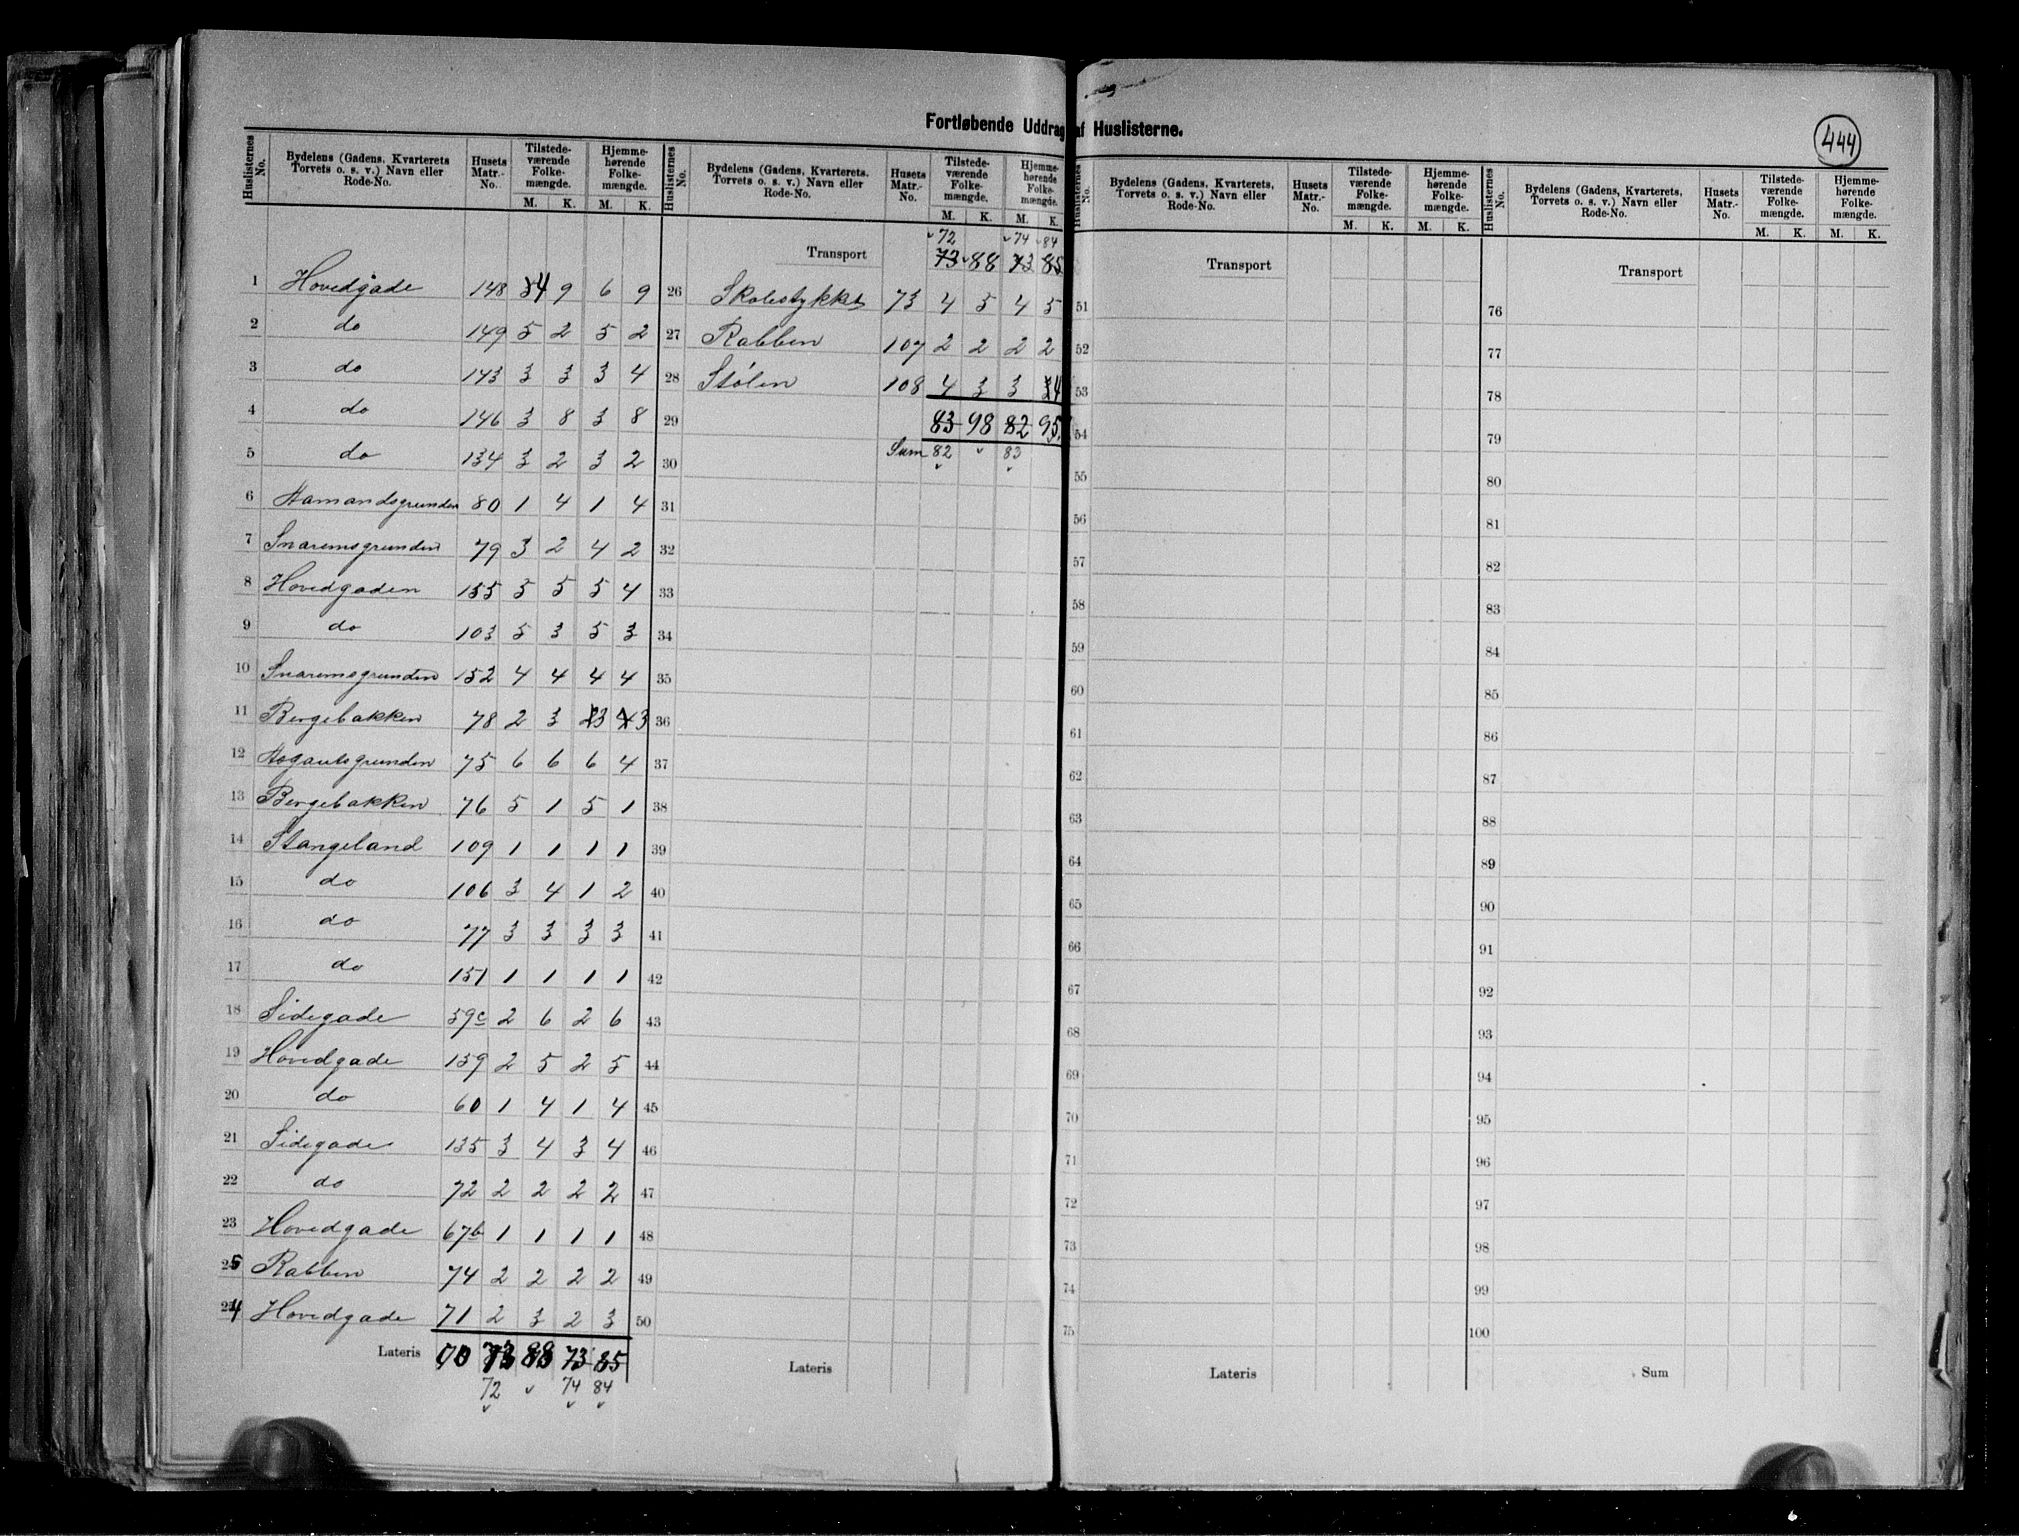 444
Fortløbende Uddrag af Huslisterne.
Huslisternes No. | Bydelens (Gadens, Kvarterets Torvets o. s. v.) Navn eller Rode-No. | Husets Matr.-No. | Tilstedeværende Folkemængde. M. K. | Hjemmehørende Folkemængde. M. K.
1 Hovedgade 148 4 9 6 9
2 do 149 5 2 5 2
3 do 143 3 3 3 4
4 do 146 3 8 3 8
5 do 134 3 2 3 2
6 Aamandsgrunden 80 1 4 1 4
7 Snaremsgrunden 79 3 2 4 2
8 Hovedgaden 155 5 5 5 4
9 do 103 5 3 5 3
10 Snaremsgrunden 152 4 4 4 4
11 Bergebakken 78 2 3 3 3
12 75 6 6 6 4
13 Bergebakken 76 5 1 5 1
14 Stangeland 109 1 1 1 1
15 do 106 3 4 1 2
16 do 77 3 3 3 3
17 do 151 1 1 1 1
18 Sidegade 59c 2 6 2 6
19 Hovedgade 159 2 5 2 5
20 do 60 1 4 1 4
21 Sidegade 135 3 4 3 4
22 do 72 2 2 2 2
23 Hovedgade 67b 1 1 1 1
25 Rabben 74 2 2 2 2
24 Hovedgade 71 2 3 2 3
Lateris 73 88 73 85
72 74 84
Huslisternes No. | Bydelens (Gadens, Kvarterets. Torvets o. s. v.) Navn eller Rode-No. | Husets Matr.-No. | Tilstedeværende Folkemængde. M. K. | Hjemmehørende Folkemængde. M. K.
72 74 84
Transport 73 88 73 85
26 Skolestykket 73 4 5 4 5
27 Rabben 107 2 2 2 2
28 Stølen 108 4 3 3 4
29 83 98 82 95
30 Sum 82 83
31
32
33
34
35
36
37
38
39
40
41
42
43
44
45
46
47
48
49
50
Lateris
Huslisternes No. | Bydelens (Gadens, Kvarterets, Torvets o. s. v.) Navn eller Rode-No. | Husets Matr.-No. | Tilstedeværende Folkemængde. M. K. | Hjemmehørende Folkemængde. M. K.
Transport
51
52
53
54
55
56
57
58
59
60
61
62
63
64
65
66
67
68
69
70
71
72
73
74
75
Lateris
Huslisternes No. | Bydelens (Gadens, Kvarterets, Torvets o. s. v.) Navn eller Rode-No. | Husets Matr.-No. | Tilstedeværende Folkemængde. M. K. | Hjemmehørende Folkemængde. M. K.
Transport
76
77
78
79
80
81
82
83
84
85
86
87
88
89
90
91
92
93
94
95
96
97
98
99
100
Sum